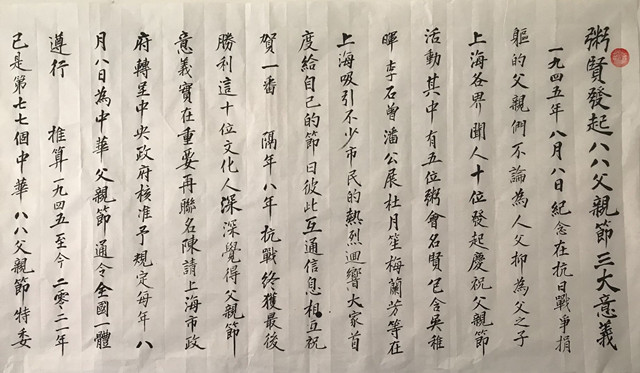 粥賢發起八八父親節三大意義
一九四五年八月八日紀念在抗日戰爭捐
軀的父親們不論為人父抑為父之子
上海各界聞人十位發起慶祝父親節
活動其中有五位粥會名賢包含吳稚
暉李石曾潘公展杜月笙梅蘭芳等在
上海吸引不少市民的熱烈迴響大家首
度給自己的節日彼此互通信息相互祝
賀一番 隔年八年抗戰終獲最後
勝利這十位文化人深深覺得父親節
意義實在重要再聯名陳請上海市政
府轉呈中央政府核准予規定每年八
月八日為中華父親節通令全國一體
遵行 推算一九四五至今二零二一年
已是第七七個中華八八父親節特委